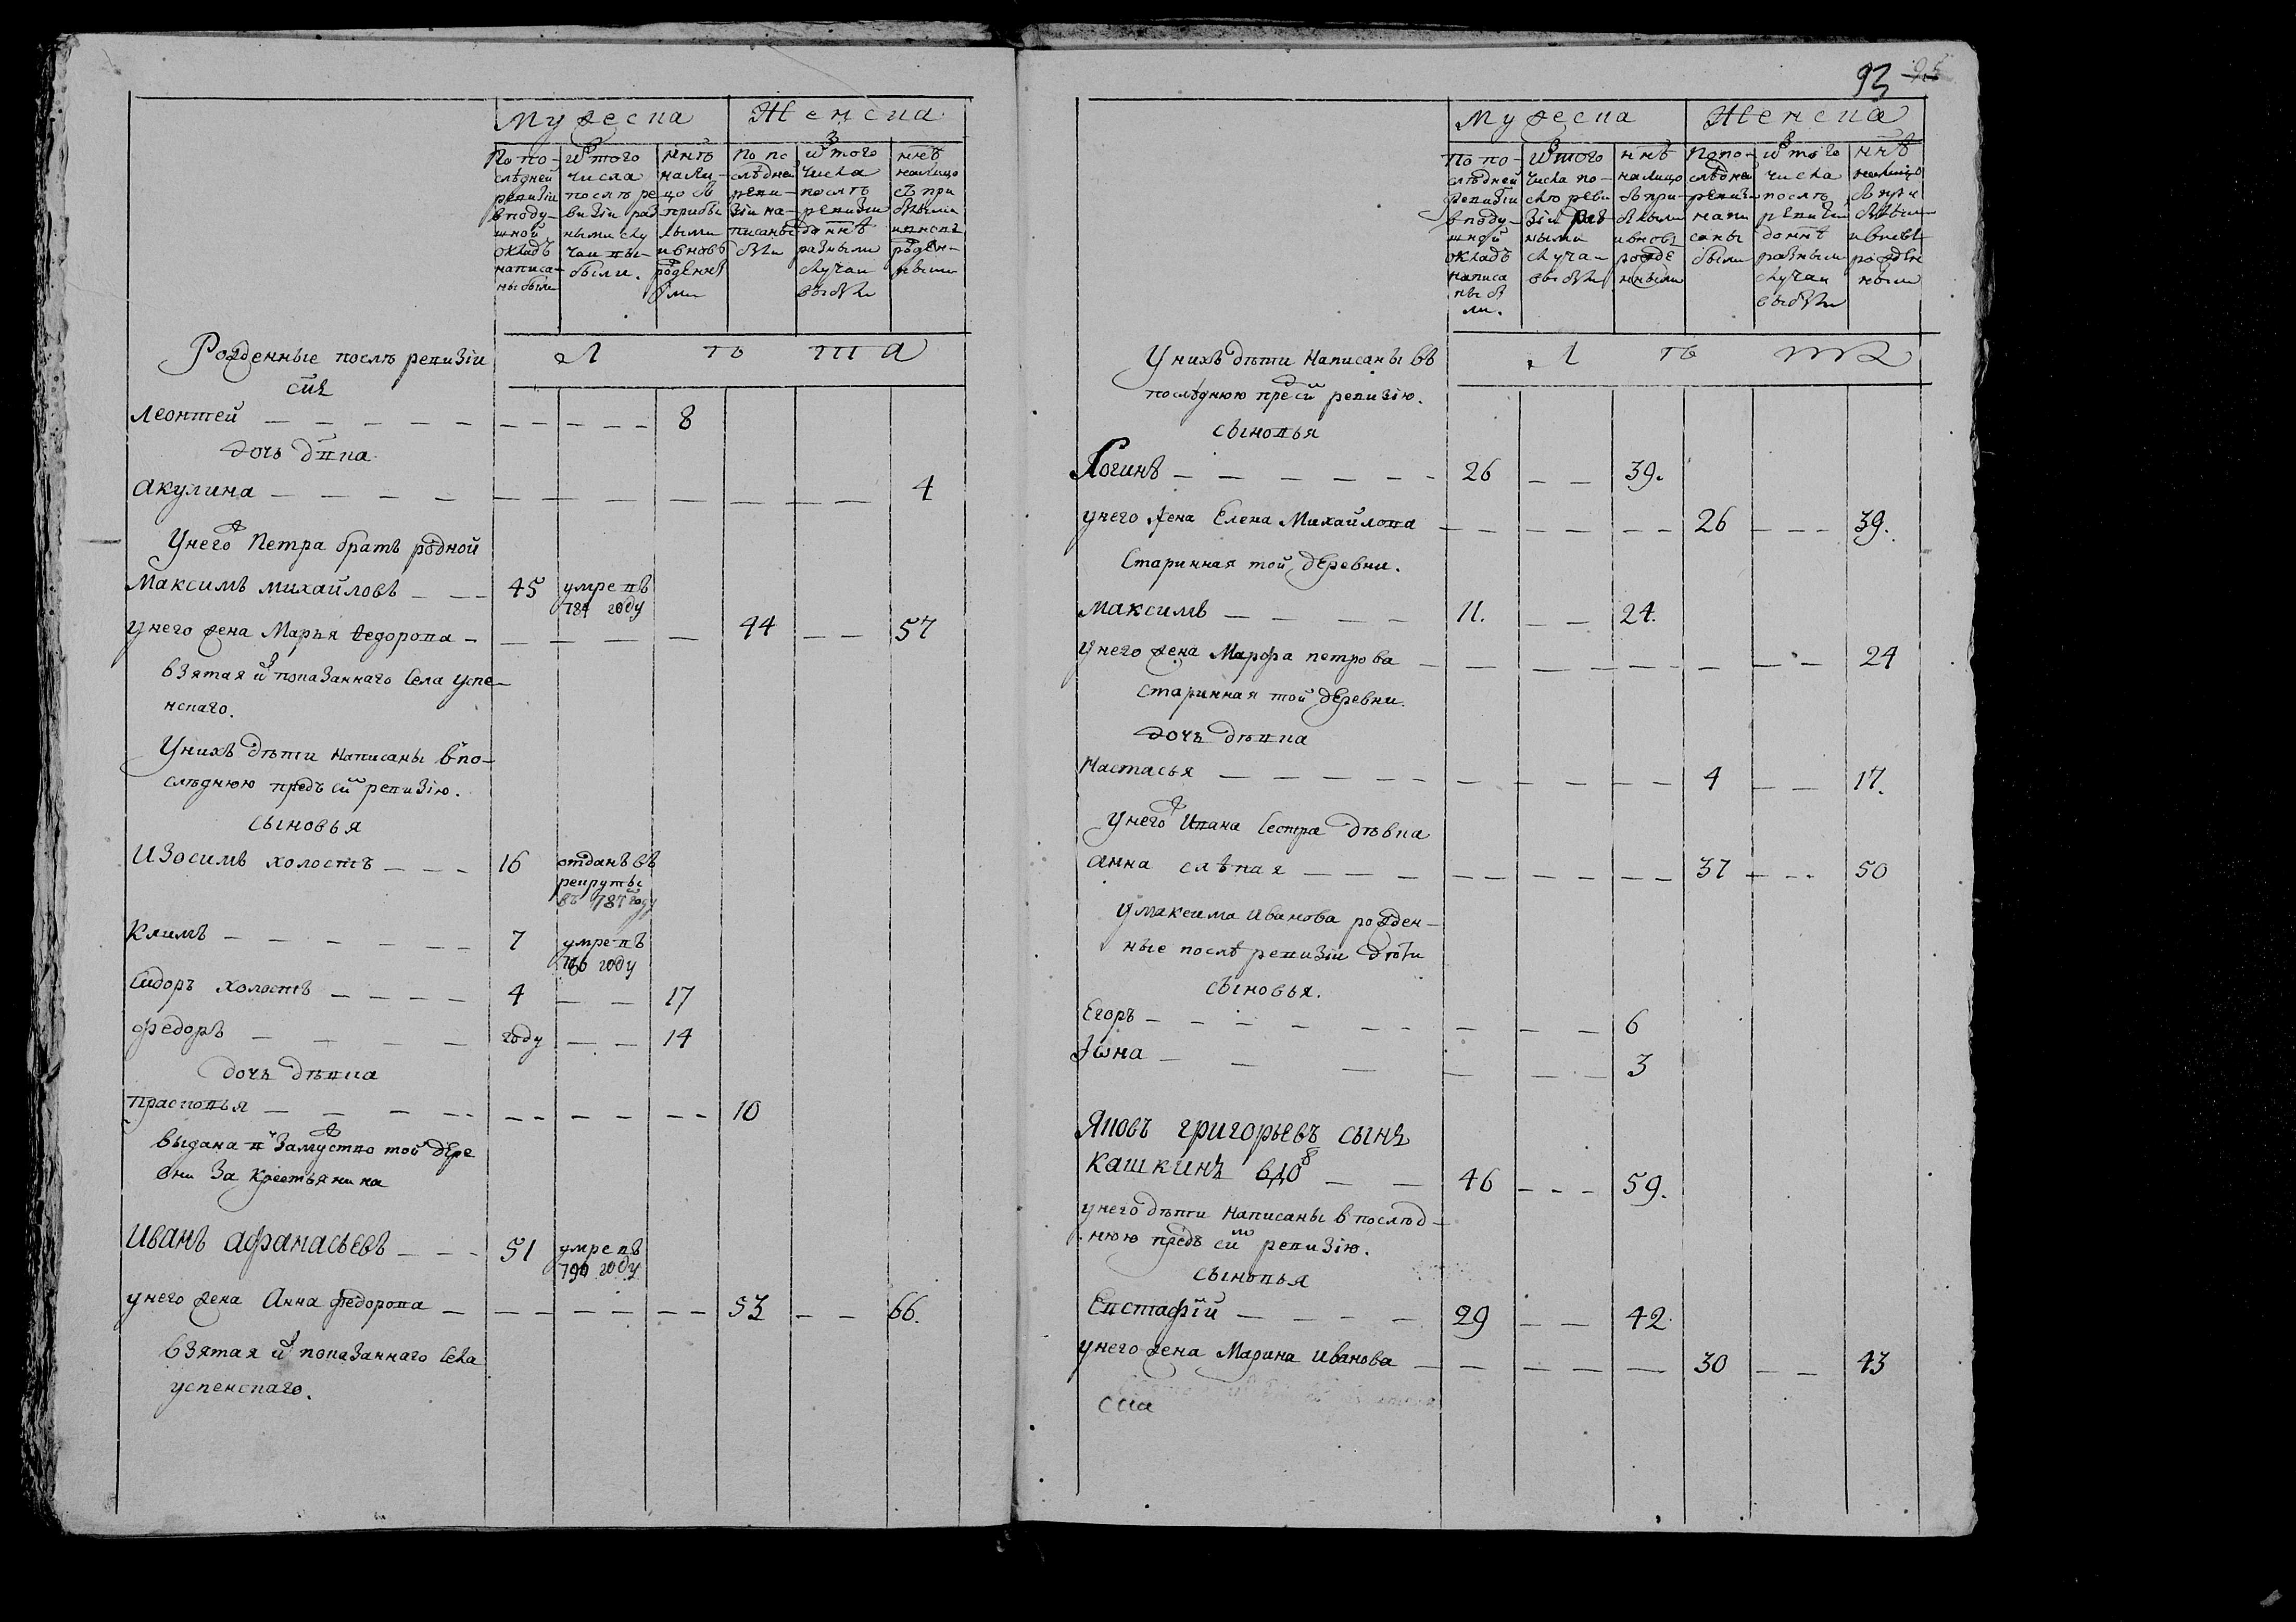 Мужеска Женска
По по-
слѣдней
ревизіи
в поду-
шной
окладъ
написа-
ны были
изъ того
числа
послѣ ре
визіи раз
ными слу
чаи вы-
были.
ннѣ
нали-
цо съ
прибы
лыми
и вновь
рожденн
ыми
По по
слѣдней
реви-
зіи на-
писаны
были
изъ того
числа
послѣ
ревизіи
до ннѣ
разными
случаи
выбыли
ннѣ
налицо
съ при
былыми
и вновь
рожден-
ными
Л ѣ т а
Рожденные послѣ ревизіи
сынъ
Леонтей 8
дочь двка
Акулина 4
У него Петра братъ родной
Максимъ михайловъ 45 умре въ
784 году
у него жена Марья Ѳедорова 44 57
взятая из показаннаго села успе-
нскаго.
У нихъ дѣти написаны в по-
слѣднюю предъ сей ревизію.
сыновья
Изосимъ холостъ 16 отданъ въ
рекруты
въ 787 году
Климъ 7 умре въ
786 году
Сидоръ холостъ 4 17
федоръ году 14
дочь дѣвка
Прасковья 10
выдана в Замуство той дере
вни за крестьянина
Иванъ афанасьевъ 51 умре въ
790 году
у него жена Анна федорова 53 66.
взятая из показаннаго села
успенскаго.
93 95
Мужеска Женска
По по-
слѣдней
ревизіи
в поду-
шной
окладъ
написа
ны бы
ли.
изъ того
числа по-
слѣ реви
зіи раз
ными
случа-
выбыли
ннѣ
налицо
съ при-
былыми
и вновь
рожде
нными
По по-
слѣдней
ревизи
напи
саны
были
изъ того
числа
послѣ
ревизіи
до ннѣ
разными
случаи
выбыли
ннѣ
налицо
съ при
былыми
и вновь
рожден
ными
Л ѣ т а
У нихъ дѣти написаны въ
послѣднюю пред сей ревизію.
сыновья
Логинъ 26 39.
у него жена Елена Михайлова 26 39.
Старинная той деревни.
Максимъ 11. 24.
у него жена Марфа петрова 24
старинная той деревни.
дочь дѣвка
Настасья 4 17.
у него Ивана Сестра дѣвка
Анна слѣпая 37 50
у максима иванова рожден-
ные послѣ ревизіи дѣти
сыновья.
Егоръ 6
Іѡна 3
Яковъ григорьевъ сынъ
кашкинъ вдов 46 59.
у него дѣти написаны в послѣд-
нюю предъ сею ревизію.
сыновья
Евстафій 29 42.
у него жена Марина иванова 30 43